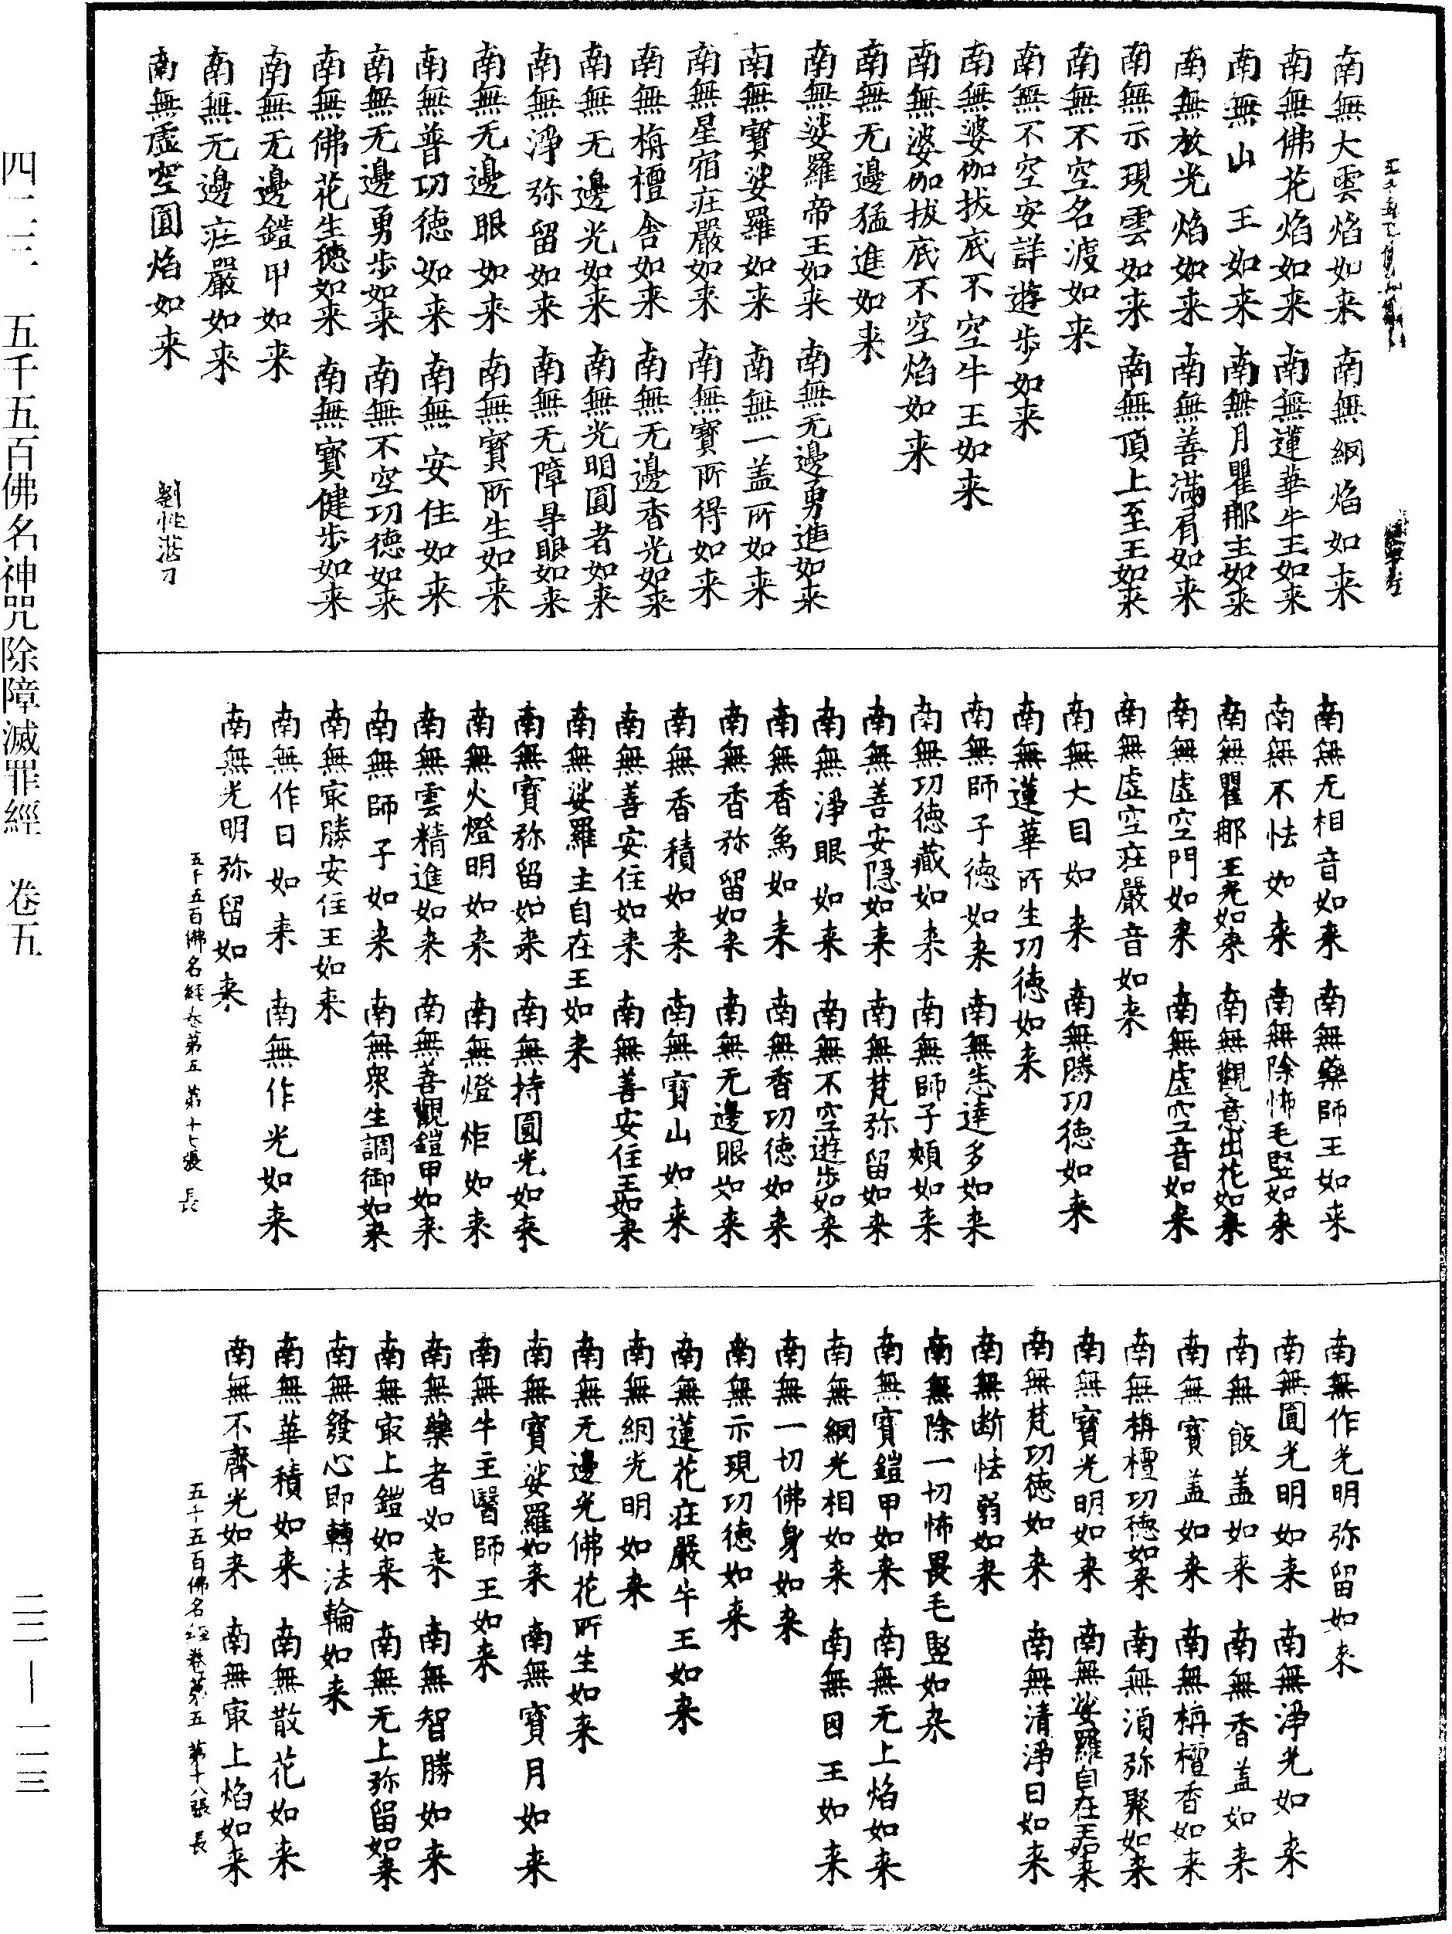 南無大雲焰如来 南無網焰如来
南無佛花焰如来 南無蓮華牛王如来
南無山王如来 南無月瞿那主如来
南無放光焰如来 南無善滿肩如来
南無示現雲如来 南無頂上至王如来
南無不空名渡如来
南無不空安詳遊步如来
南無婆伽拔底不空牛王如来
南無婆伽拔底不空焰如来
南無无邊猛進如来
南無娑羅帝王如来 南無无邊勇進如来
南無寶娑羅如来 南無一盖所如来
南無星宿庄嚴如来 南無寶所得如来
南無栴檀舍如来 南無无邊香光如来
南無无邊光如来 南無光明圓者如来
南無淨弥留如来 南無无障㝵眼如来
南無无邊眼如来 南無寶所生如来
南無普功德如来 南無安住如来
南無无邊勇步如来 南無不空功德如来
南無佛花生德如来 南無寶健步如来
南無无邊鎧甲如来
南無无邊庄嚴如来
南無虛空圓焰如来
南無无相音如来 南無藥師王如来
南無不怯如来 南無除怖毛竪如来
南無瞿那王光如来 南無觀意出花如来
南無虛空門如来 南無虛空音如来
南無虛空庄嚴音如来
南無大目如来 南無勝功德如来
南無蓮華所生功德如来
南無師子德如来 南無悉達多如来
南無功德藏如来 南無師子頰如来
南無善安隱如来 南無梵弥留如来
南無淨眼如来 南無不空遊步如来
南無香爲如来 南無香功德如来
南無香弥留如来 南無无邊眼如来
南無香積如来 南無寶山如来
南無善安住如来 南無善安住王如来
南無娑羅主自在王如来
南無寶弥留如来 南無持圓光如来
南無火燈明如来 南無燈炬如来
南無雲精進如来 南無善觀鎧甲如来
南無師子如来 南無衆生調御如来
南無㝡勝安住王如来
南無作日如来 南無作光如来
南無光明弥留如来
五千五百佛名經卷第五 第十七張 長
南無作光明弥留如来
南無圓光明如来 南無淨光如来
南無飯盖如来 南無香盖如来
南無寶盖如来 南無栴檀香如来
南無栴檀功德如来 南無湏弥聚如来
南無寶光明如来 南無娑羅自在王如来
南無梵功德如来 南無清淨日如来
南無断怯弱如来
南無除一切怖畏毛竪如来
南無寶鎧甲如来 南無无上焰如来
南無網光相如来 南無因王如来
南無一切佛身如来
南無示現功德如来
南無蓮花庄嚴牛王如来
南無網光明如来
南無无邊光佛花所生如来
南無寶娑羅如来 南無寶月如来
南無牛主醫師王如来
南無藥者如来 南無智勝如来
南無㝡上鎧如来 南無无上弥留如来
南無發心即轉法輪如来
南無華積如来 南無散花如来
南無不齊光如来 南無㝡上焰如来
五千五百佛名經卷第五 第十八張 長
四二三 五千五百佛名神咒除障滅罪經 卷五
二二—一一三